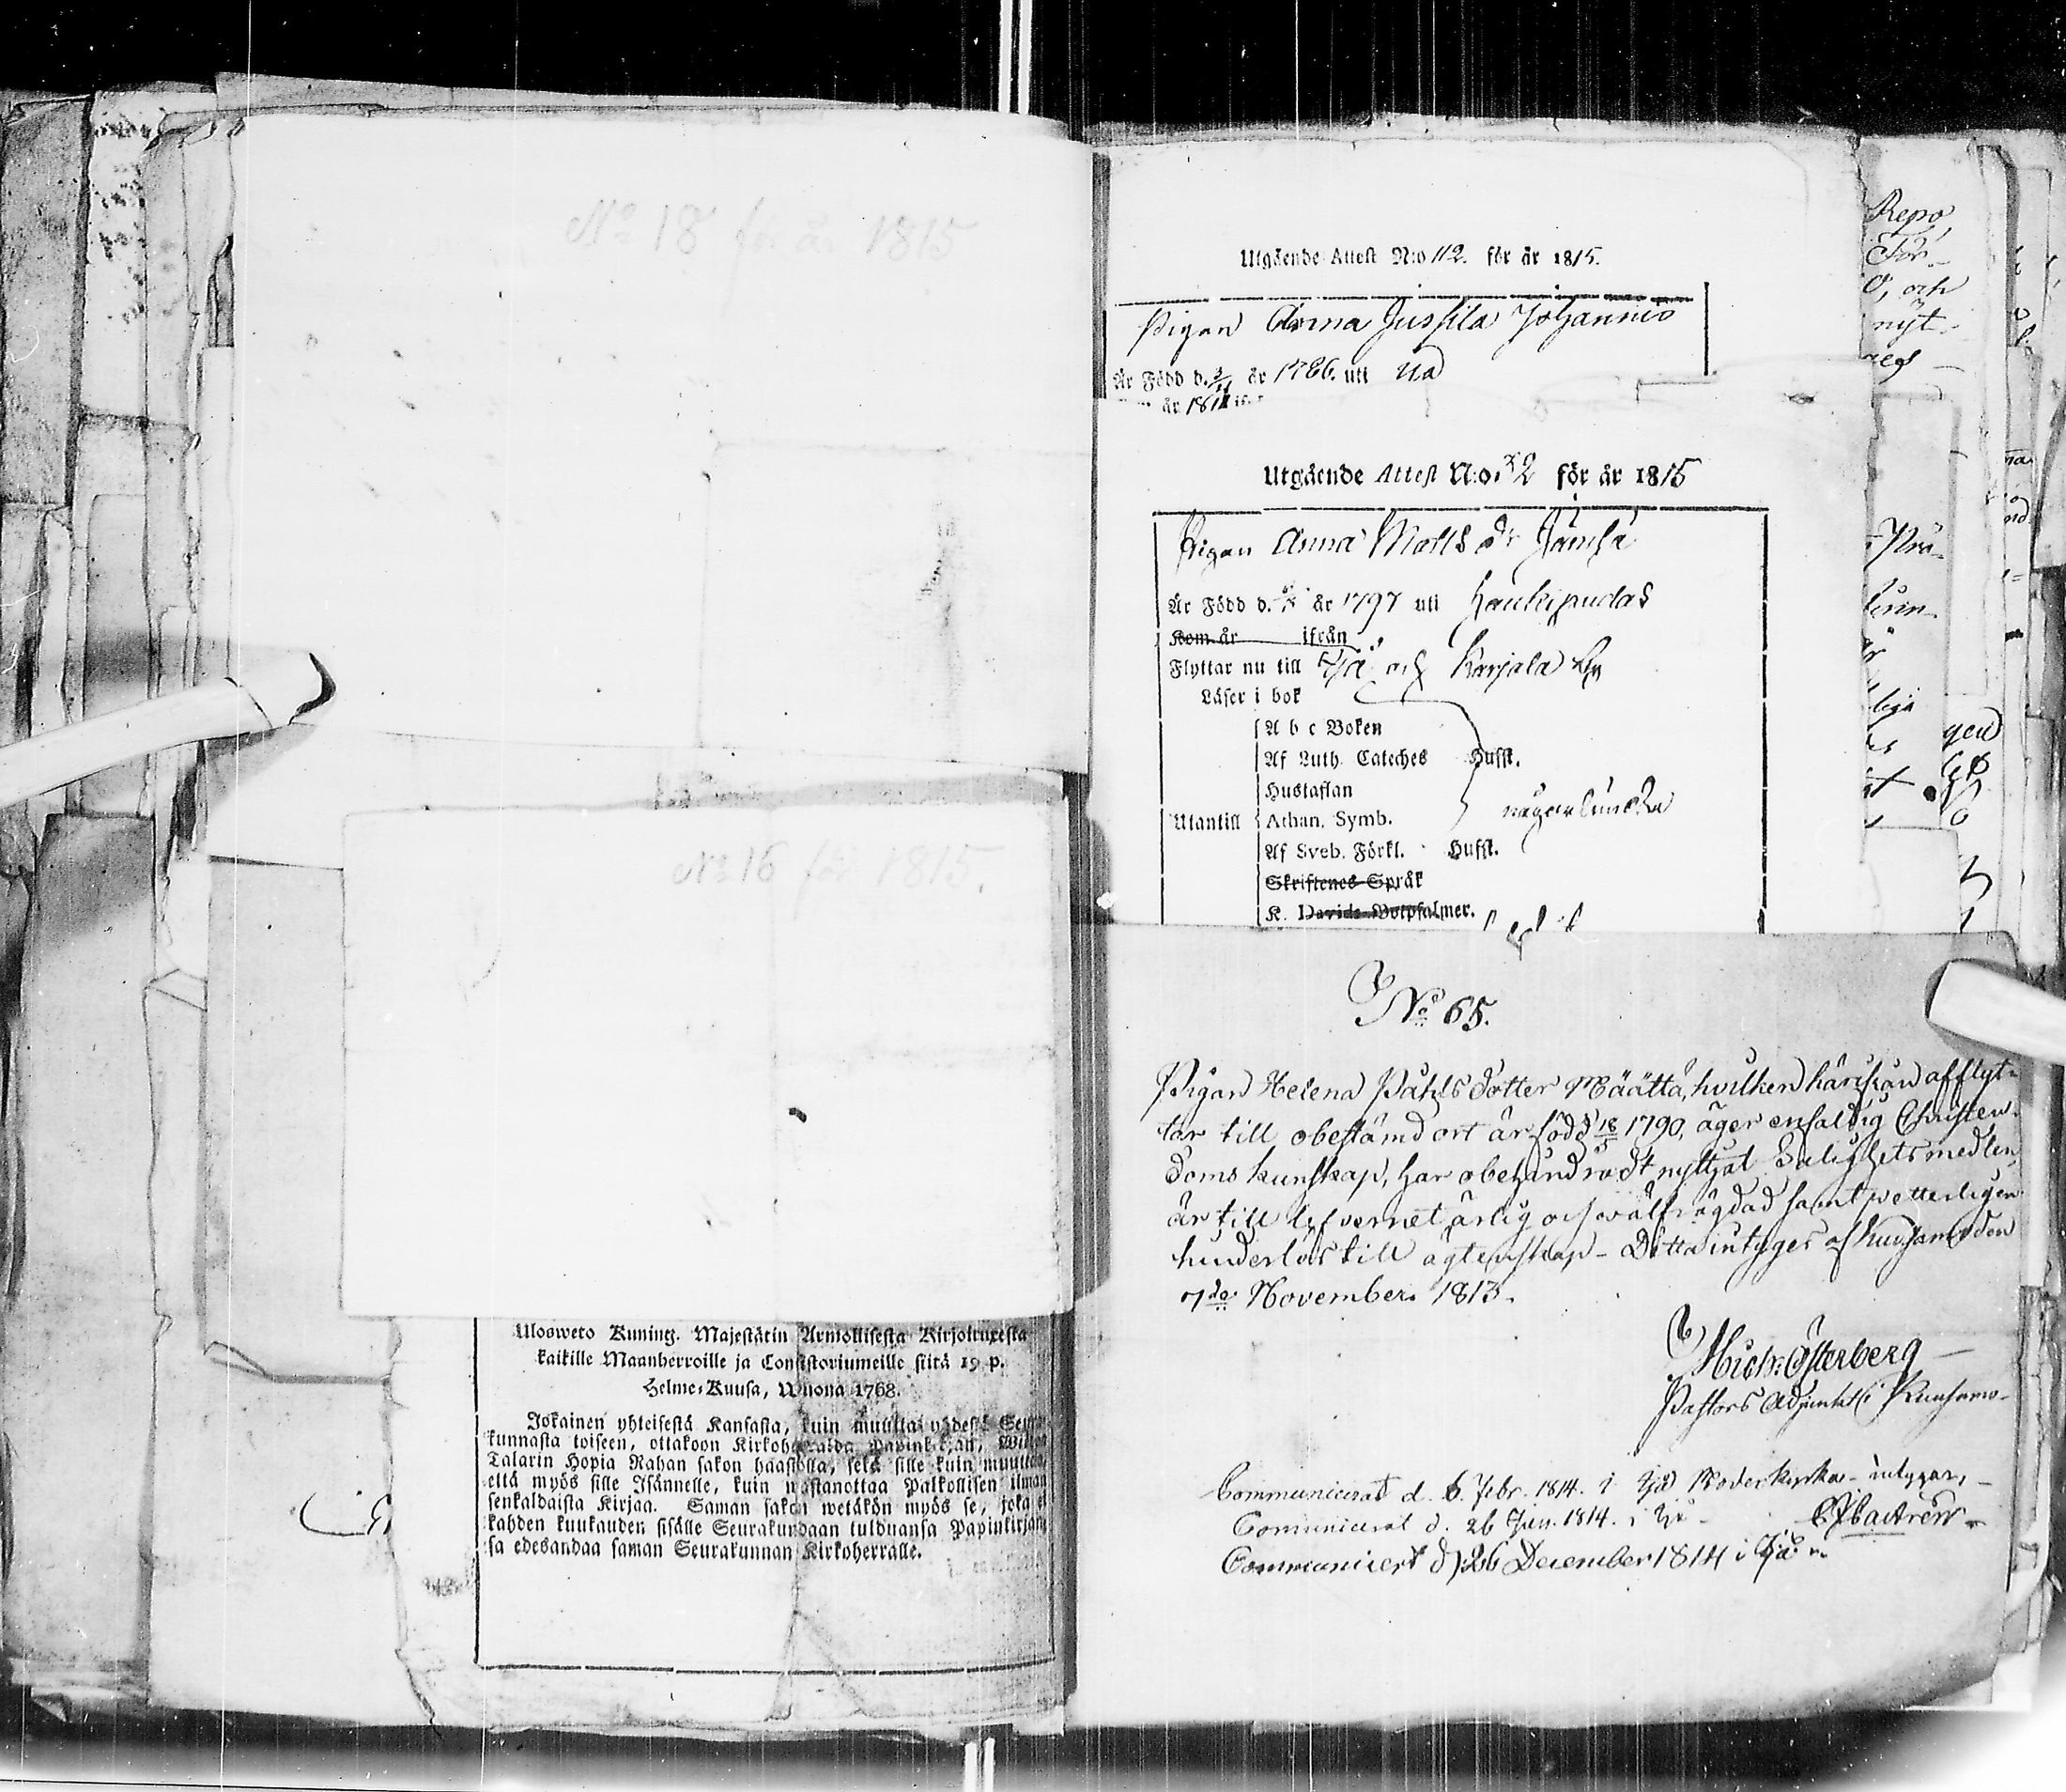 No 18 för år 1815
No 16 för 1815.
Ulosweto Kuning. Majestätin Armollisesta Kirjoituxesta
kaikille Maanherroille ja Consistoriumeille siitä 19 p.
Helme-Kuusa, Wuona 1768.
Jokainen yhteisestä Kansasta, kuin muutta yhdestä Seura
kunnasta toiseen, ottakoon Kirkoherralda Papinkirjan,
Talarin Hopia Rahan sakon haastolla, sekä sille kuin muuttaa,
että myös sille Isännelle, kuin wastanottaa Palkollisen ilman
senkaldaista Kirjaa. Saman sakon wetäkön myös se, joka ei
kahden kuukauden sisälle Seurakundaan tulduansa Papinkirjans
sa edesandaa saman Seurakunnan Kirkoherralle.
Utgående Attest N:o 112. för år 1815.
Pigan Anna Jussila Johannis
Är Född d. 3/11 år 1786. uti
år 1811
Utgående Attest N:o. 32 för år 1815
Pigan Anna Matts dr Jämsä
Är Född d. år 1797 uti Haukipudas
Kom år ifrån
Flyttar nu till Ijå och Karjala By
Läser i bok
A b c Boken
Af Luth. Cateches Hufst.
Hustaflan
Utantill Athan. Symb. någorlunda
Af Sveb. Förkl. Hufst.
Skriftenes Språk
K. Davids Botpsalmer.
No 65.
Pigan Helena Påhls dotter Määttä, hvilken härifrån afflyt-
tar till obestämd ort är född 18/5 1790, äger enfaldig Christen-
doms kunskap, har obehindradt nyttjat Salighetsmedlen,
är till lefvernet ärlig och välfrägdad samt vetterligen
hinderlös till ägtenskap - Detta intyges af Kuusamo den
7de November 1813.
Mich: Österberg
Pastors Adjunct i Kuusamo-
Communicerat d. 6. Febr. 1814. i Ijå Moderkyrka - intygar,
Communicerat d. 26 Jun. 1814. i Ijå -
Communicert d. 26 December 1814 i Ijå